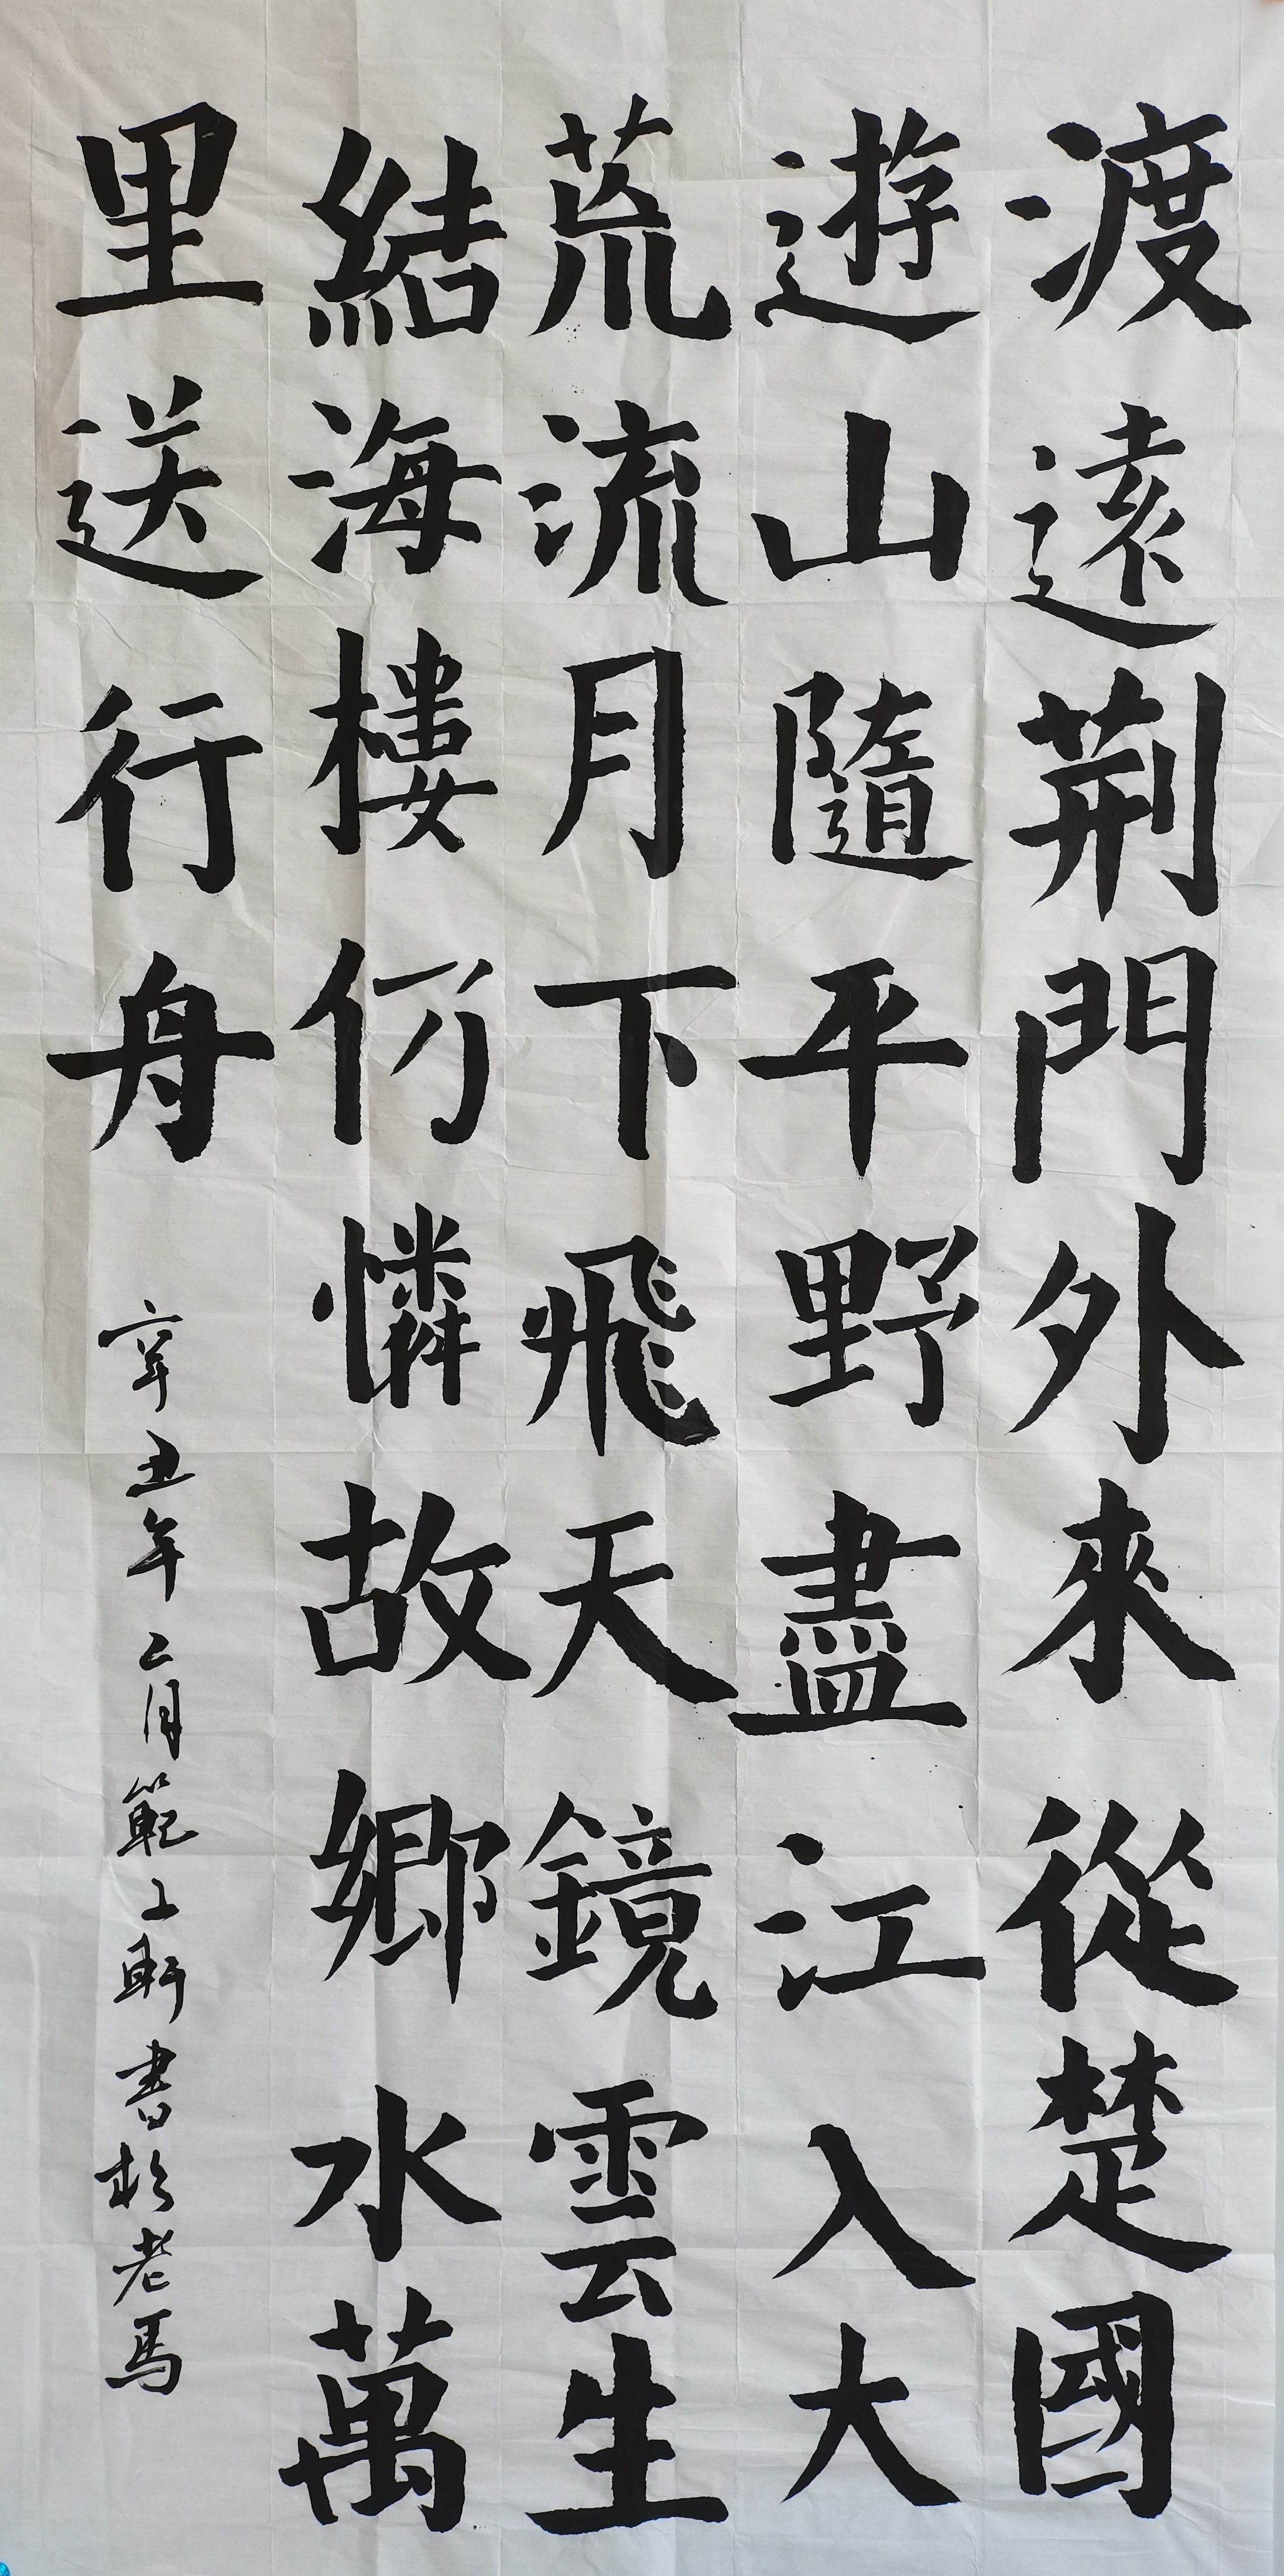 渡遠荆門外來從楚國
遊山隨平野盡江入大
荒流月下飛天鏡雲生
結海樓仍憐故鄉水萬
里送行舟
辛丑年二月範軒書於老馬